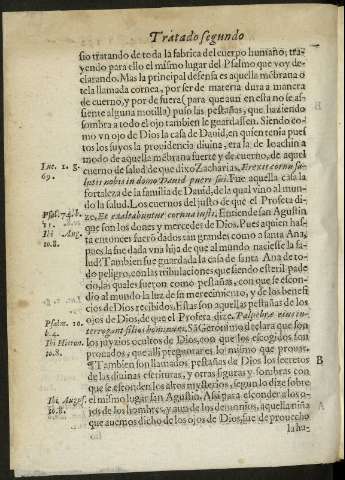 Tratado segundo
sio tratando de toda la fabrica del cuerpo humano; tra-
yendo para ello el mismo lugar del Psalmo que voy de-
clarando. Mas la principal defensa es aquella mẽbrana ò
tela llamada cornea, por ser de materia dura a manera
de cuerno, y por de fuera (para que aun en esta no se as-
siente alguna motilla) puso las pestañas, que haziendo
sombra a todo el ojo tambien le guardassen. Siendo co-
mo vn ojo de Dios la casa de Dauid, en quien tenia pues
tos los suyos la prouidencia diuina, era la de Ioachin a
modo de aquella mẽbrana fuerte y de cuerno, de aquel
Luc. 1. g.
69.
cuerno de salud de que dixo Zacharias, Erexit cornu sa-
lutis nobis in domo Dauid pueri sui. Fue aquella casa la
fortaleza de la familia de Dauid, de la qual vino al mun-
do la salud. Los cuernos del justo de que el Profeta di-
Psal. 74. b.
11.
ze, Et exaltabuntur cornua iusti, Entiende san Agustin
Ibi Aug.
to.8.
que son los dones y mercedes de Dios. Pues aquien has-
ta entonces fuerõ dados tan grandes como a santa Ana,
pues la fue dada vna hija de que al mundo naciesse la sa-
lud? Tambien fue guardada la casa de santa Ana de to-
do peligro, con las tribulaciones que siendo esteril pade-
cio, las quales fueron como pestañas, con que se escon-
dio al mundo la luz de su merecimiento, y de los benefi-
cios de Dios recibidos. Estas son aquellas pestañas de los
Psalm. 10.
b.4.
ojos de Dios, de que el Profeta dize. Palpebræ eius in-
terrogant filios hominum. Sã Geronimo declara que son
Ibi Hieron.
to.8.
los juyzios ocultos de Dios, con que los escogidos son
prouados, que alli preguntar es lo mismo que prouar.
¶ Tambien son llamados pestañas de Dios los secretos B
de las diuinas escrituras, y otras figuras y sombras con
que se esconden los altos mysterios, segun lo dize sobre
Ibi August.
to.8.
el mismo lugar san Agustin. Assi para esconder a los o-
jos de los hombres, y aun de los demonios, aquella niña
que auemos dicho de los ojos de Dios, fue de prouecho
la hu-